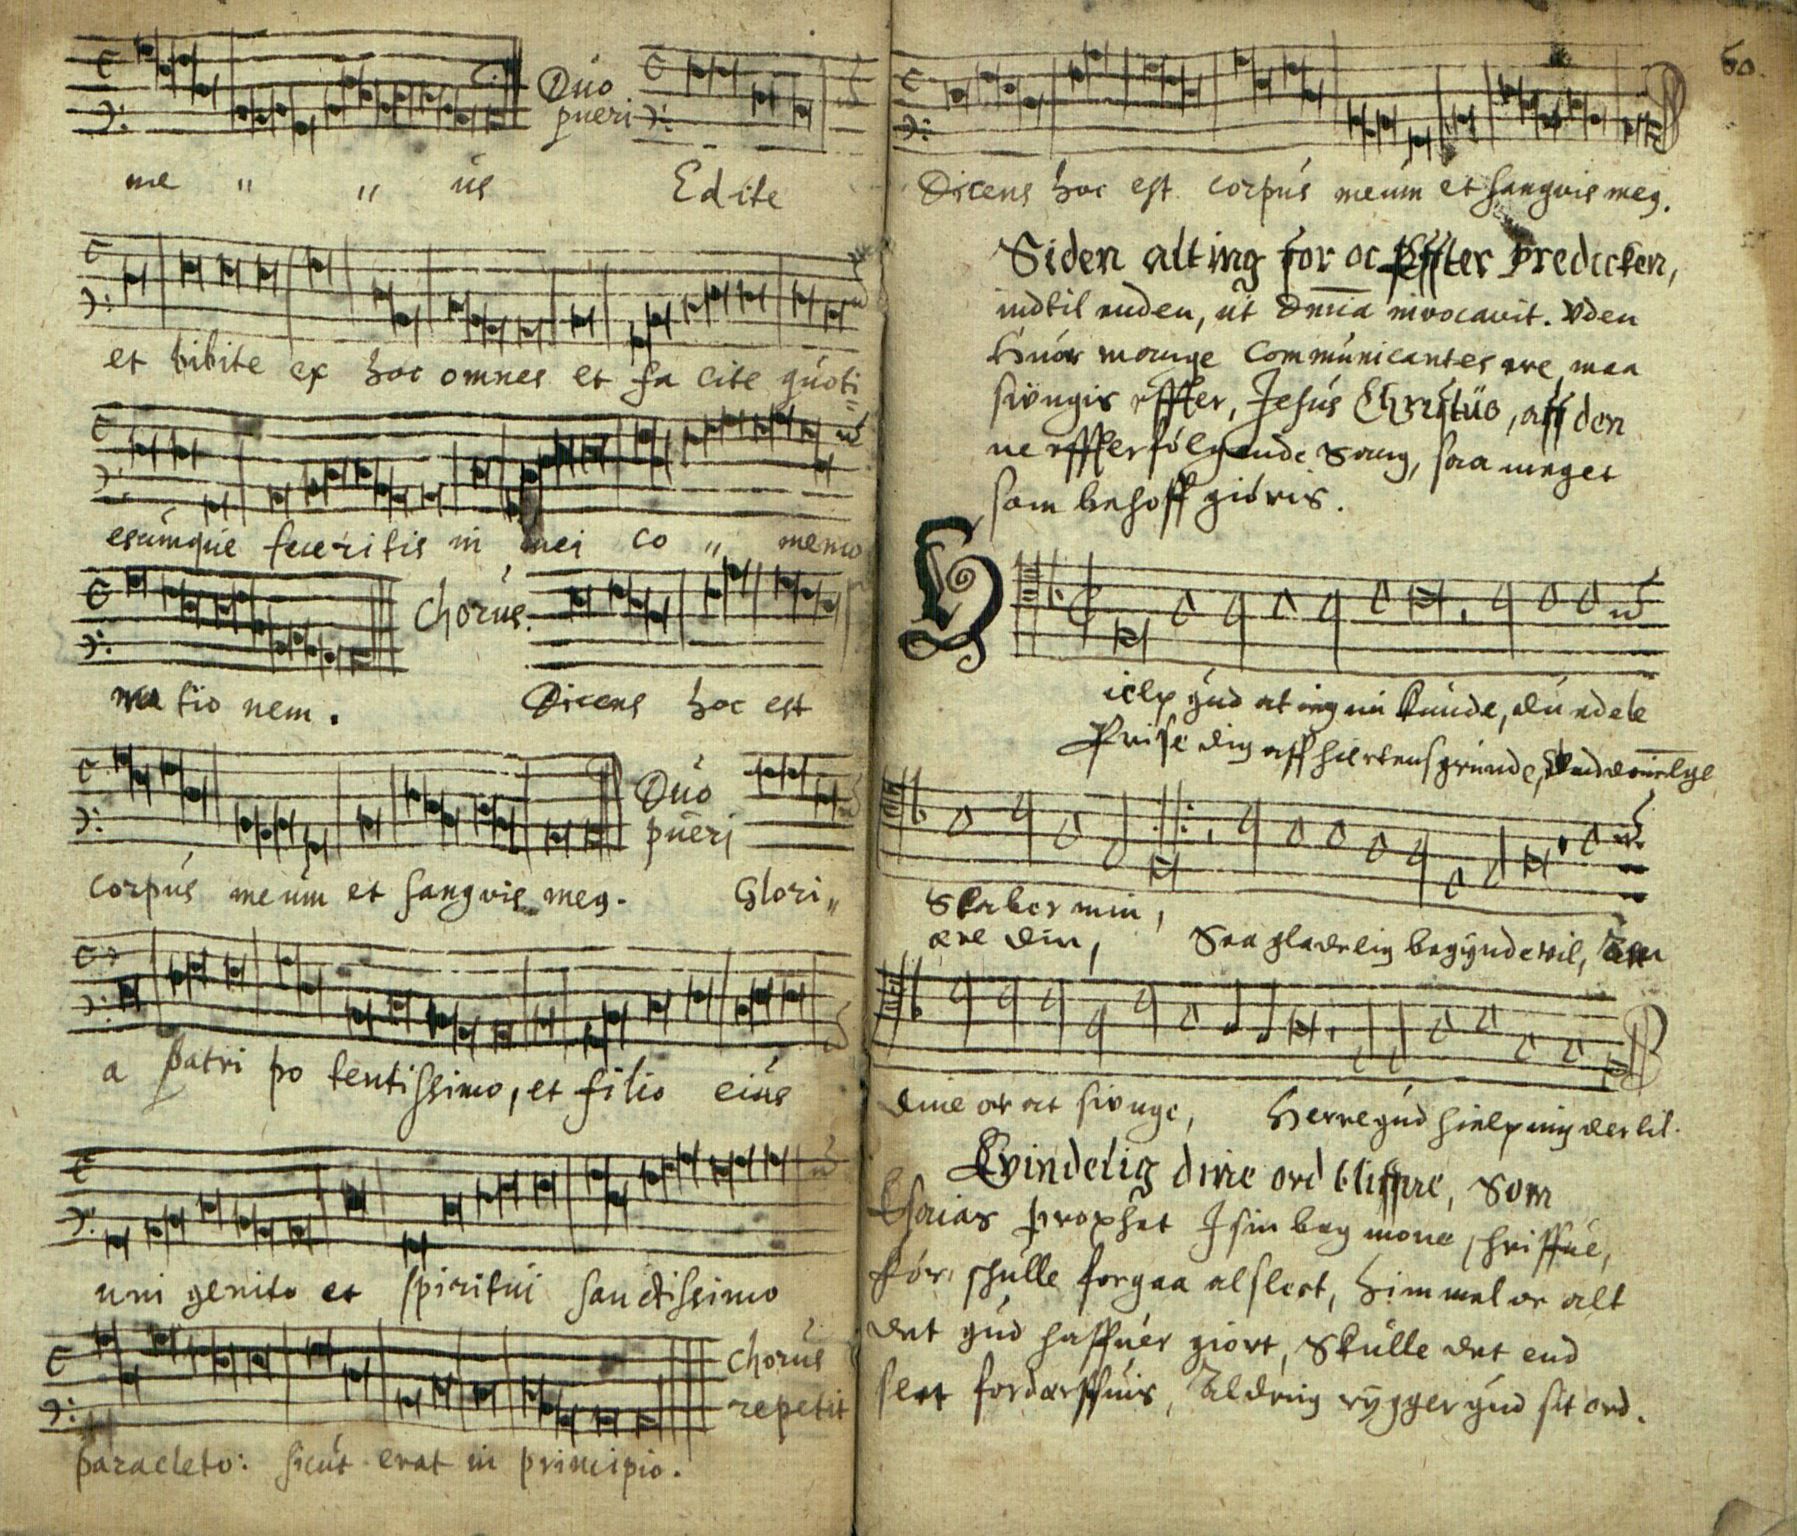 Duo
pueri
me " " us Edite
et bibite ex hoc omnes et fa cite quoti
escumque feceritis in mei co " memo
Chorus.
ra tio nem. Dicens hoc est
Duo
pueri
corpus meum et sangvis meq. Glori"
a patri po tentissimo, et filio eius
uni genito et spiritui sanctissimo
Chorus
repetit
paracleto: sicut erat in principio.
60.
Dicens hoc est corpus meum et sangvis meq.
Siden alting for oc Effter Predicken,
indtil enden, ut Dnica invocavit. Uden
Huor mange Communicantes ere, maa
siungis effter, Jesus Christus, aff den
ne effterfølgende Sang, saa meget
som behoff giøris.
H
ielp gud at ieg nu kunde, du edele
Prise dig aff hiertens grunde,
Skaber min,
ære din, Saa gladelig begynde vil,
dine or at siunge, Herre gud hielp mig der til.
Evindelig dine ord bliffue, Som
Esaias prophet I sin bog mone schriffue,
før schulle forgaa alslet, Himmel oc alt
det gud haffuer giort, Skulle det end
slet fordærffuis, Aldrig rygger gud sit ord.